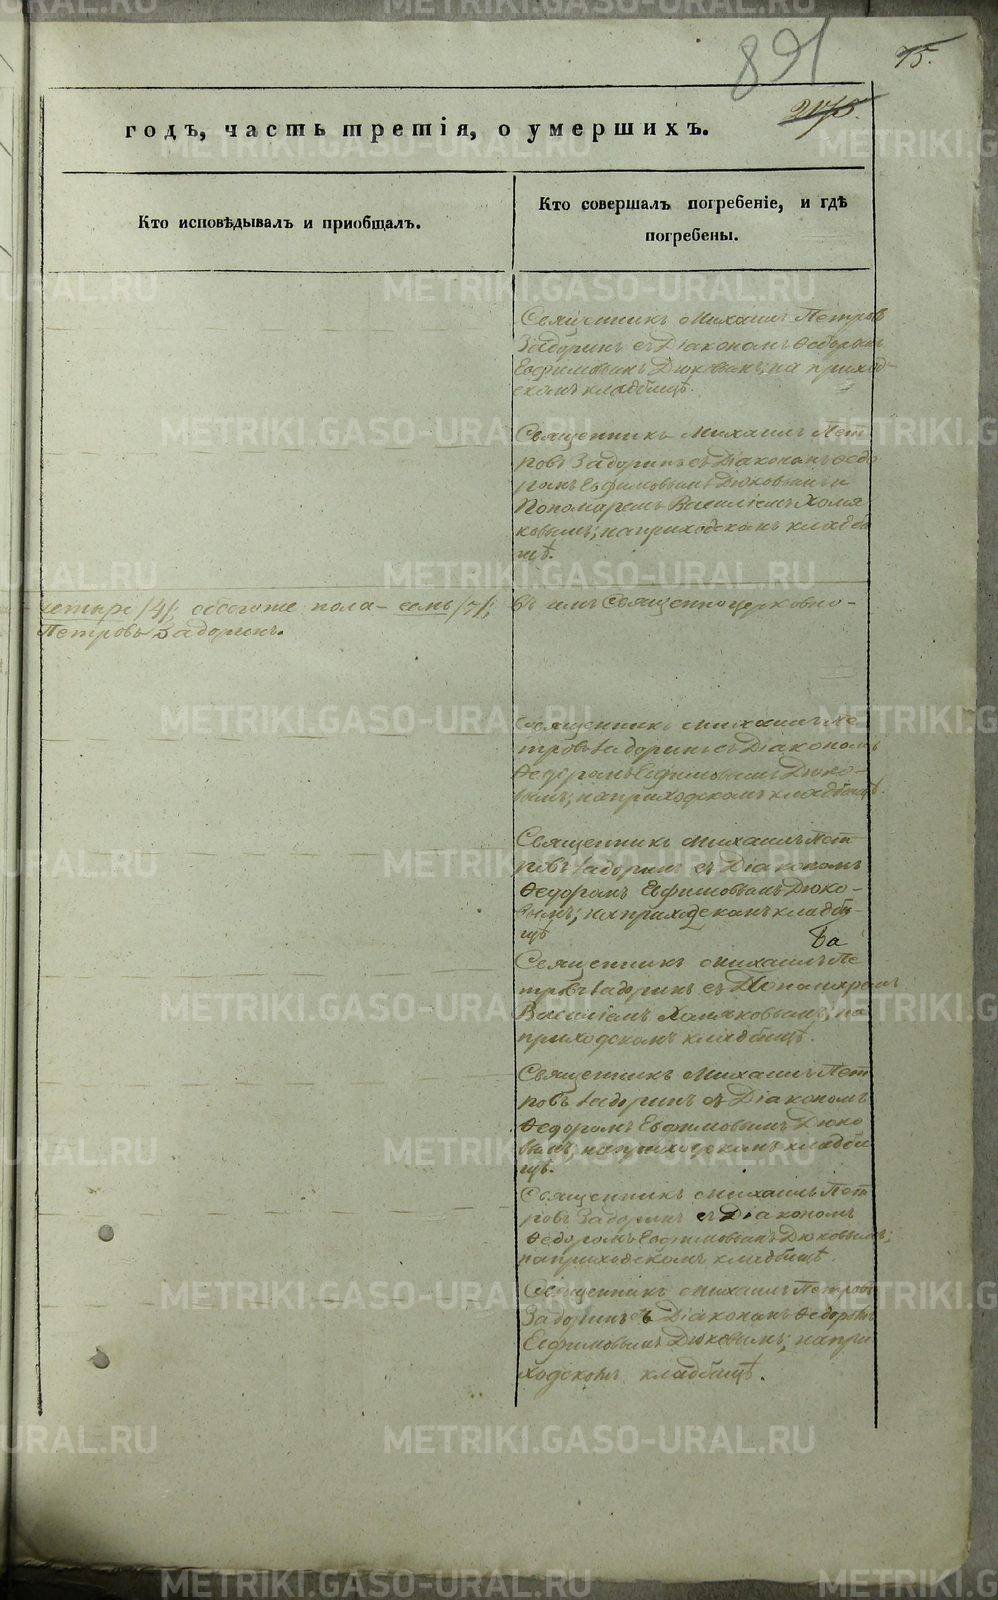 891
75.
годъ, часть третія, о умершихъ.
Кто исповѣдывалъ и приобщалъ.
Кто совершалъ погребеніе, и гдѣ
погребены.
Священникъ Михаилъ Петровъ
Задоринъ съ Діакономъ Ѳедоромъ
Евфимовымъ Дюковымъ; на приход-
скомъ кладбищѣ.
Священникъ Михаилъ Пет
ровъ Задоринъ съ Діакономъ Ѳедо
ромъ Евфимовымъ Дюковымъ и
Пономаремъ Василіемъ Хомя
ковымъ; на приходскомъ кладби
щѣ.
четыре /4/; обоегоже пола – семь /7/; въ имъ Священноцерковно-
Петровъ Задоринъ.
Священникъ Михаилъ Пе
тровъ Задоринъ съ Діакономъ
Ѳедоромъ Евфимовымъ Дюко-
вымъ; на приходскомъ кладбищѣ.
Священникъ Михаилъ Пет
ровъ Задоринъ съ Діакономъ
Ѳедоромъ Евфимовымъ Дюко-
вымъ; на приходскомъ кладби-
щѣ
Священникъ Михаилъ Пе
тровъ Задоринъ съ Пономаремъ
Василіемъ Хомяковымъ; на
приходскомъ кладбищѣ.
Священникъ Михаилъ Пет
ровъ Задоринъ съ Діакономъ
Ѳедоромъ Евфимовымъ Дюко
вымъ; на приходскомъ кладби
щѣ.
Священникъ Михаилъ Пет
ровъ Задоринъ съ Діакономъ
Ѳедоромъ Евфимовымъ Дюковымъ;
на приходскомъ кладбищѣ.
Священникъ Михаилъ Петровъ
Задоринъ съ Діакономъ Ѳедоромъ
Евфимовымъ Дюковымъ; на при
ходскомъ кладбищѣ.
METRIKI.GASO-URAL.RU